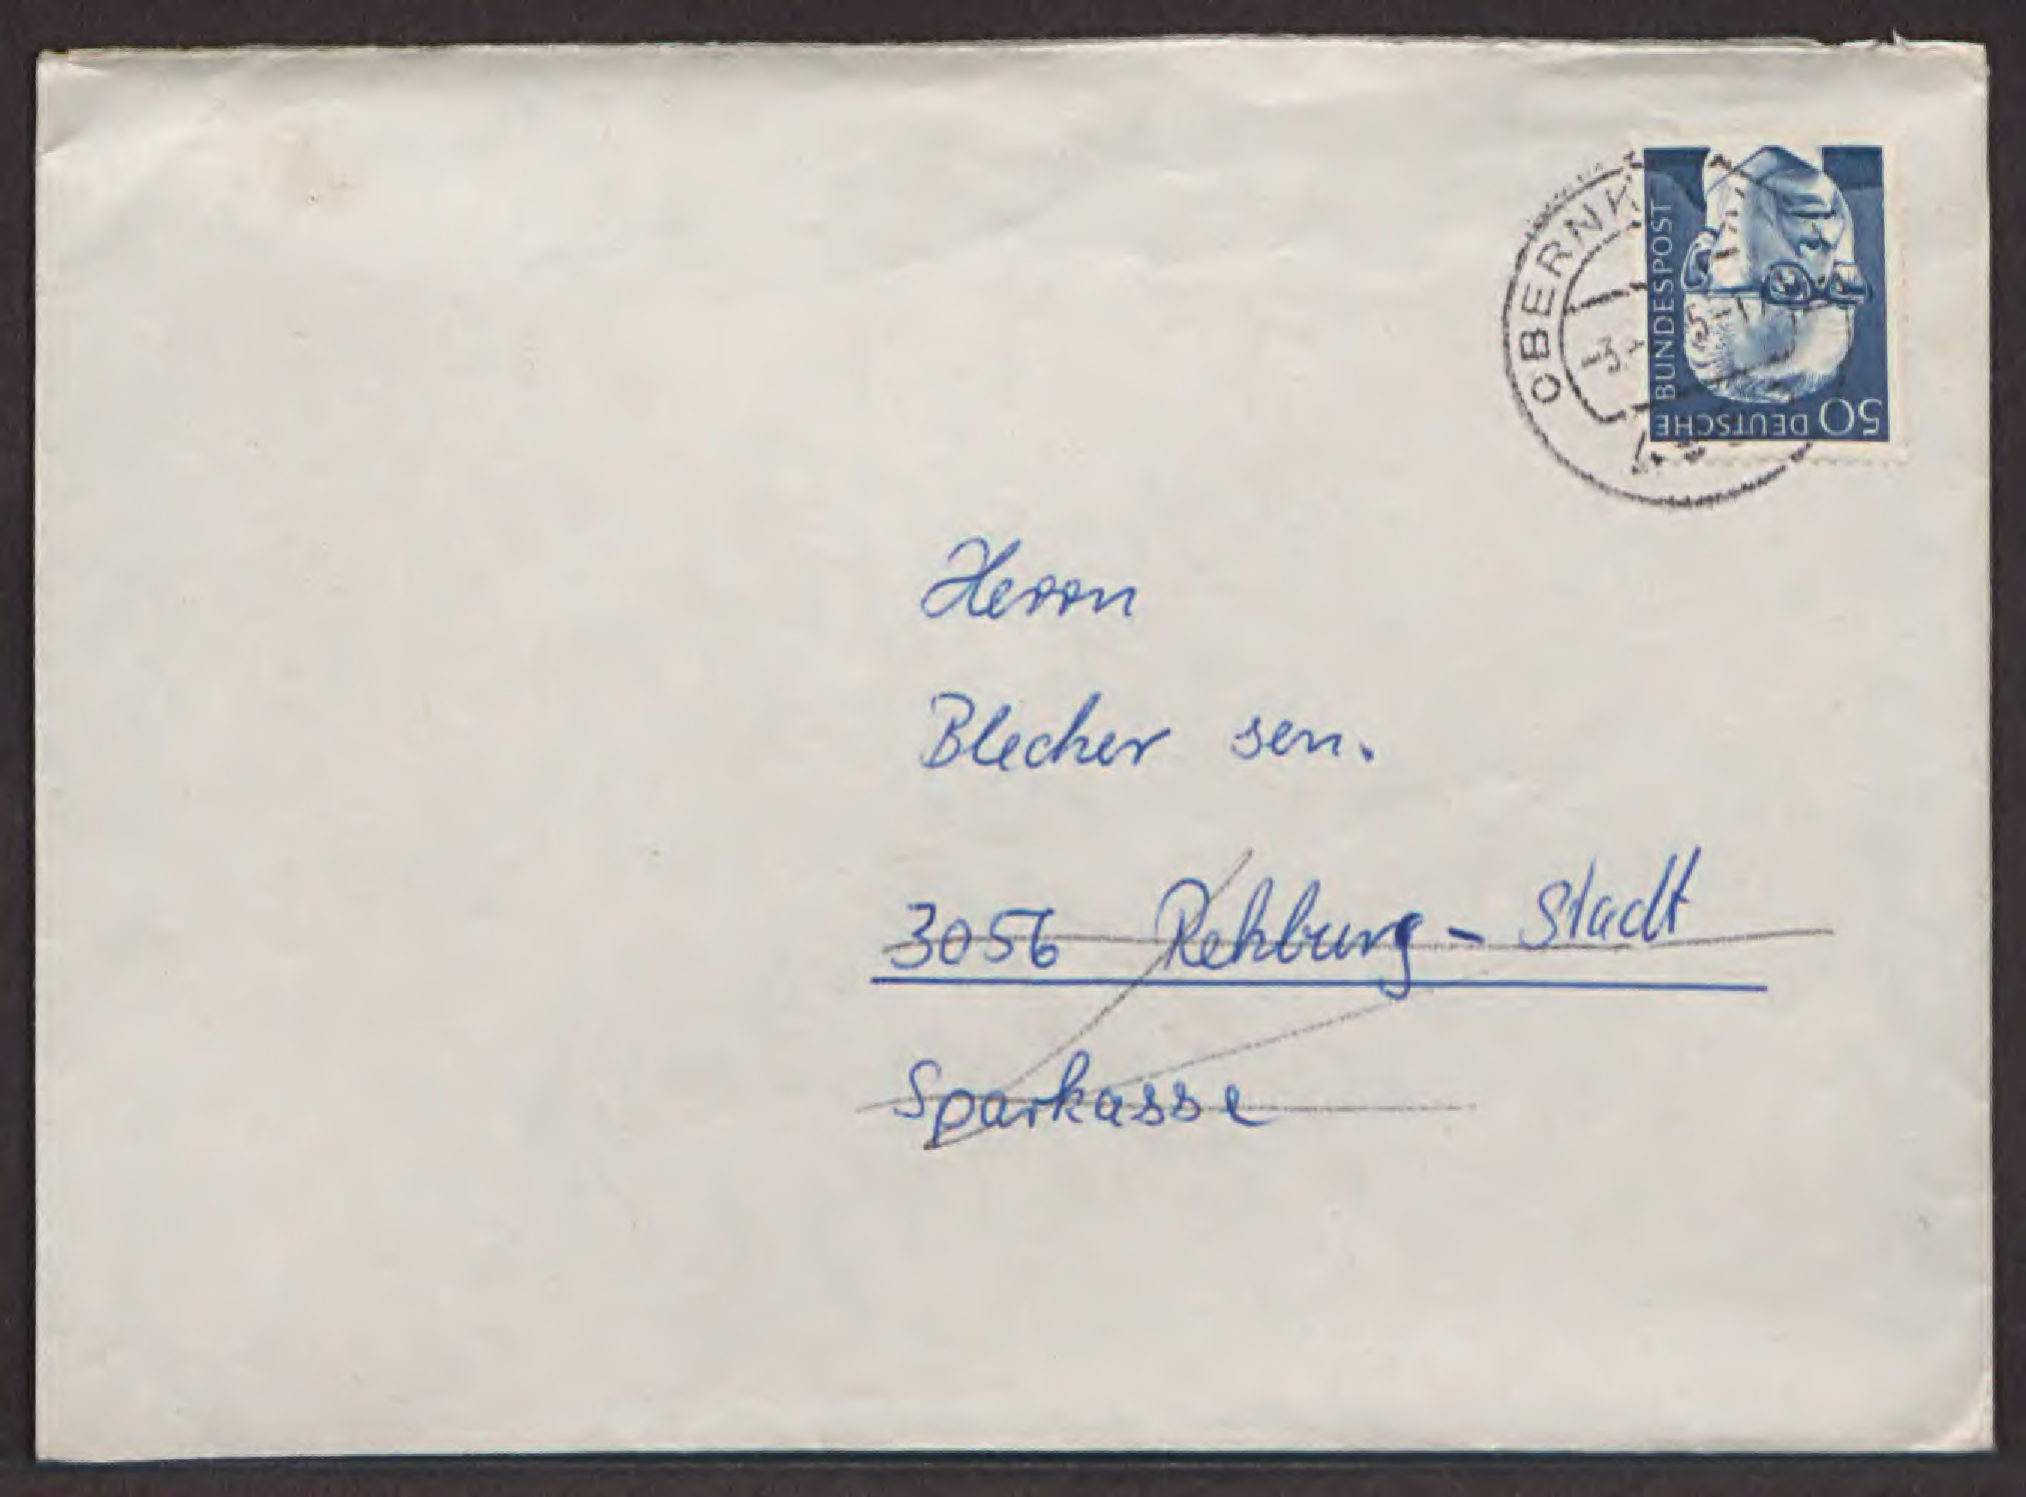 OBERNK
-3.- 5-17
50 DEUTSCHE
BUNDESPOST
Herrn
Blecher sen.
3056 Rehburg - Stadt
Sparkasse